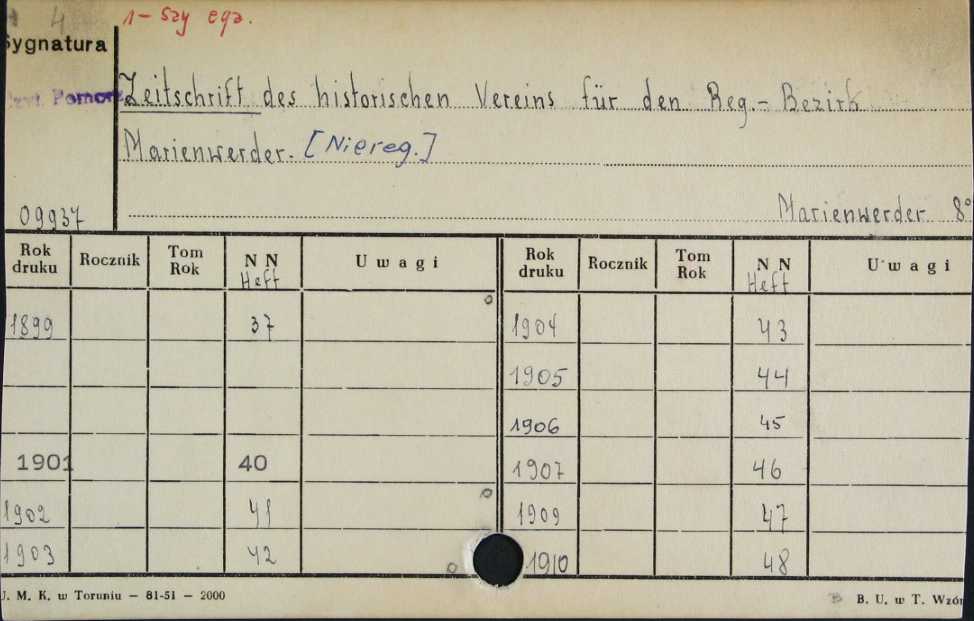 4 1-szy egz.
Sygnatura
Pomorz
Zeitschrift des historischen Vereins für den Reg.- Bezirk
Marienwerder. [Niereg.]
09937 Marienwerder 8°
Rok druku Rocznik Tom Rok N N Heft Uwagi Rok druku Rocznik Tom Rok N N Heft Uwagi
1899 37 1904 43
1905 44
1906 45
1901 40 1907 46
1902 41 1909 47
1903 42 1910 48
J. M. K. w Toruniu — 81-51 — 2000 B. U. w T. Wzór